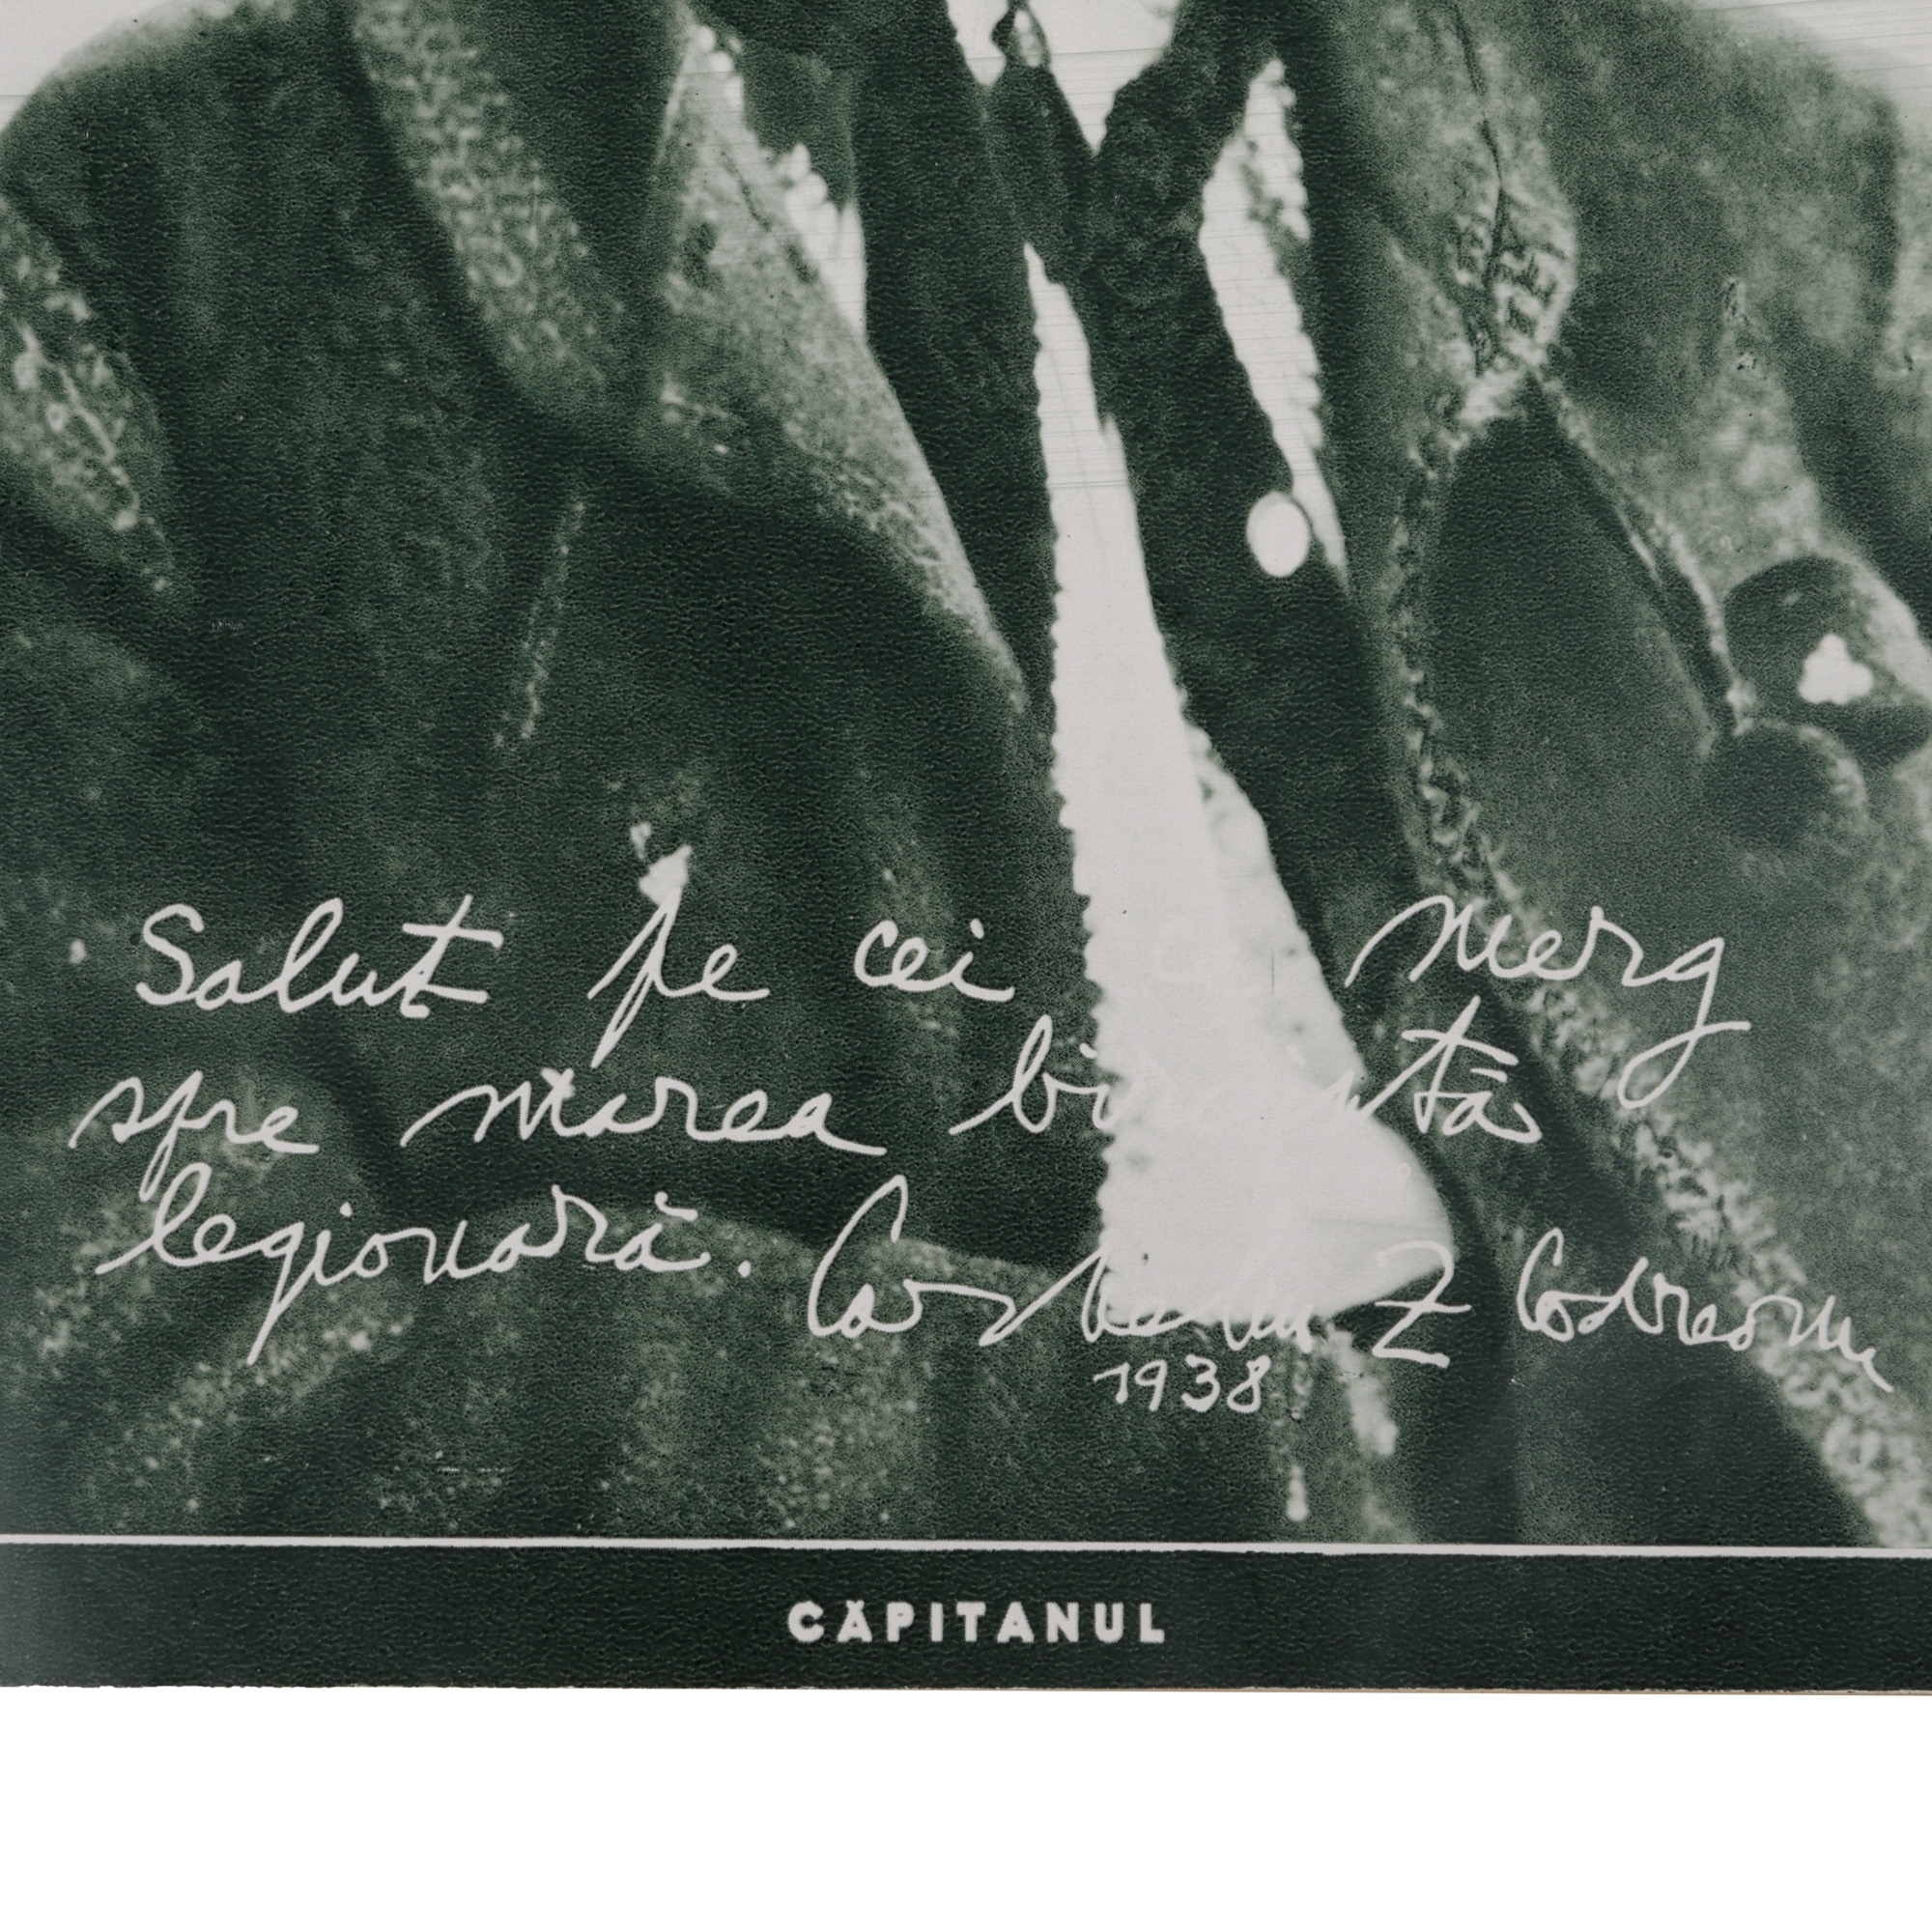 Salut pe cei merg
spre marea biruință
legionară. Corneliu Z Codreanu
1938
CĂPITANUL